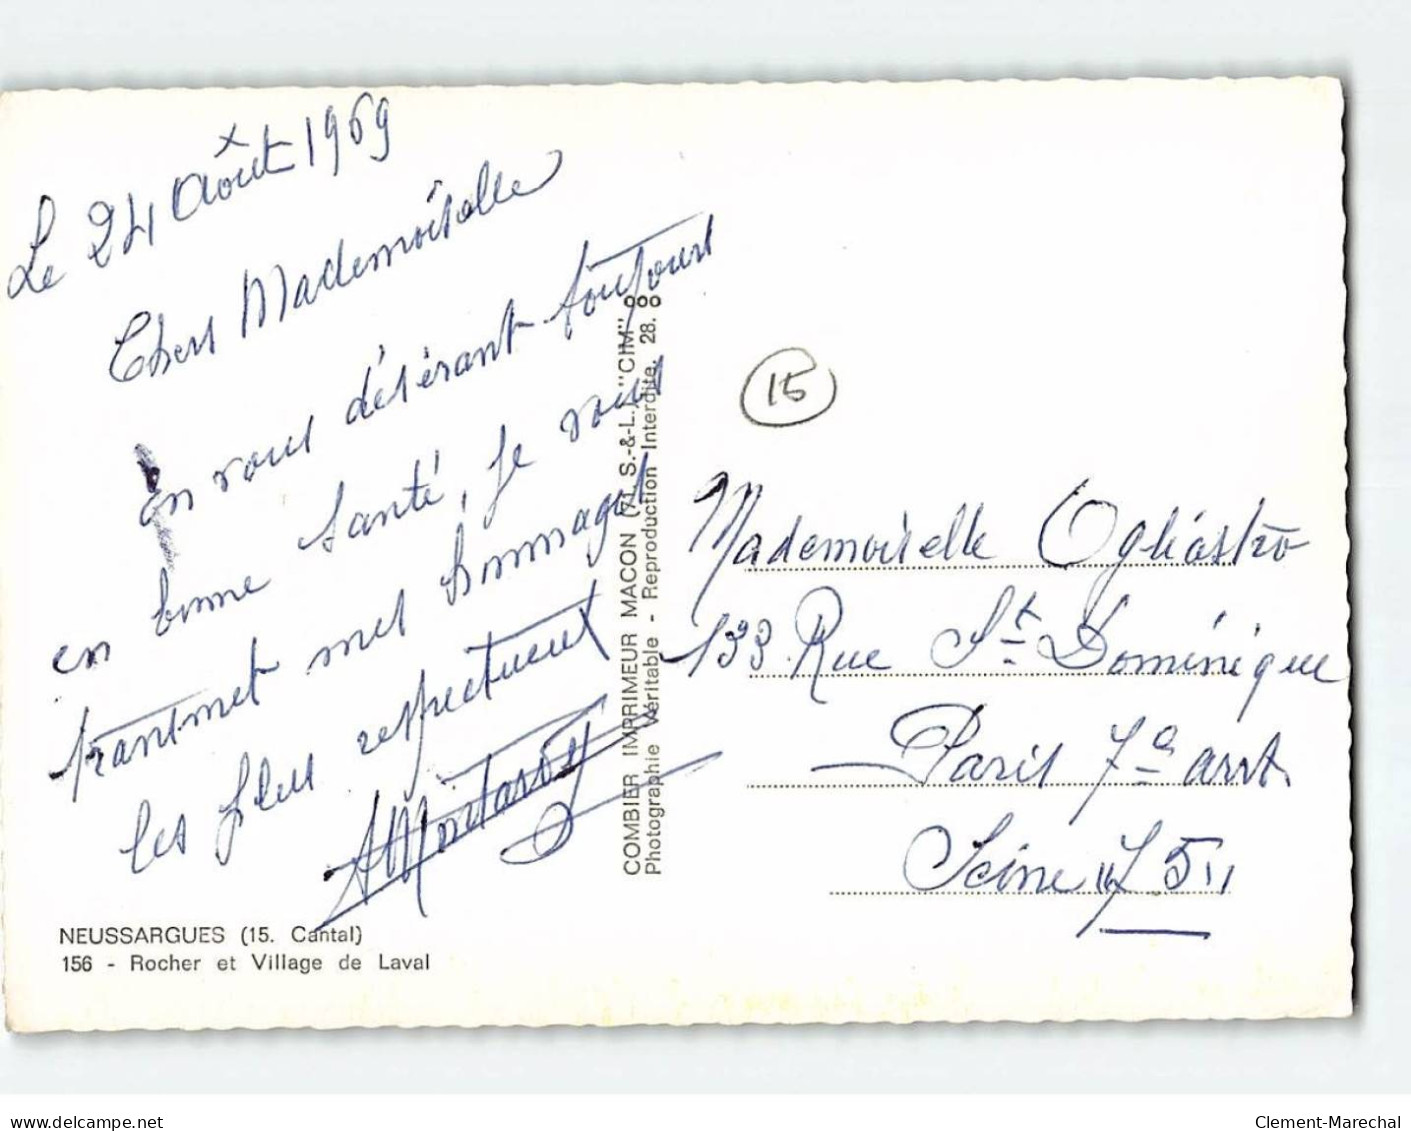 Le 24 Août 1969
Chers Mademoiselle
En vous désirant toujours
en bonne santé, je vous
transmet mes hommages
les plus respectueux
NEUSSARGUES (15. Cantal)
156 - Rocher et Village de Laval
COMBIER IMPRIMEUR MACON (71. S.-&-L.) "CIM"
Photographie Véritable - Reproduction Interdite. 28.
15
Mademoiselle Ogliastro
133 Rue St Dominique
Paris 7e arrt
Seine "75"
www.delcampe.net
Clement-Marechal